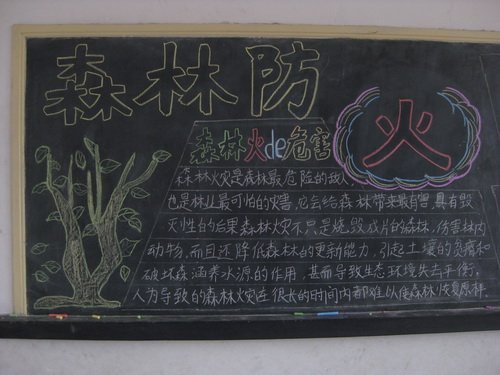 森林防火
森林火de危害
森林火灾是森林最危险的敌人,
也是林业最可怕的灾害,它会给森林带来最有害,具有毁
灭性的后果森林火灾不只是烧毁成片的森林,伤害林内
动物,而且还降低森林的更新能力,引起土壤的贫瘠和
破坏森涵养水源的作用,甚而导致生态环境失去平衡。
人为导致的森林火灾在很长的时间内都难以使森林恢复原样.